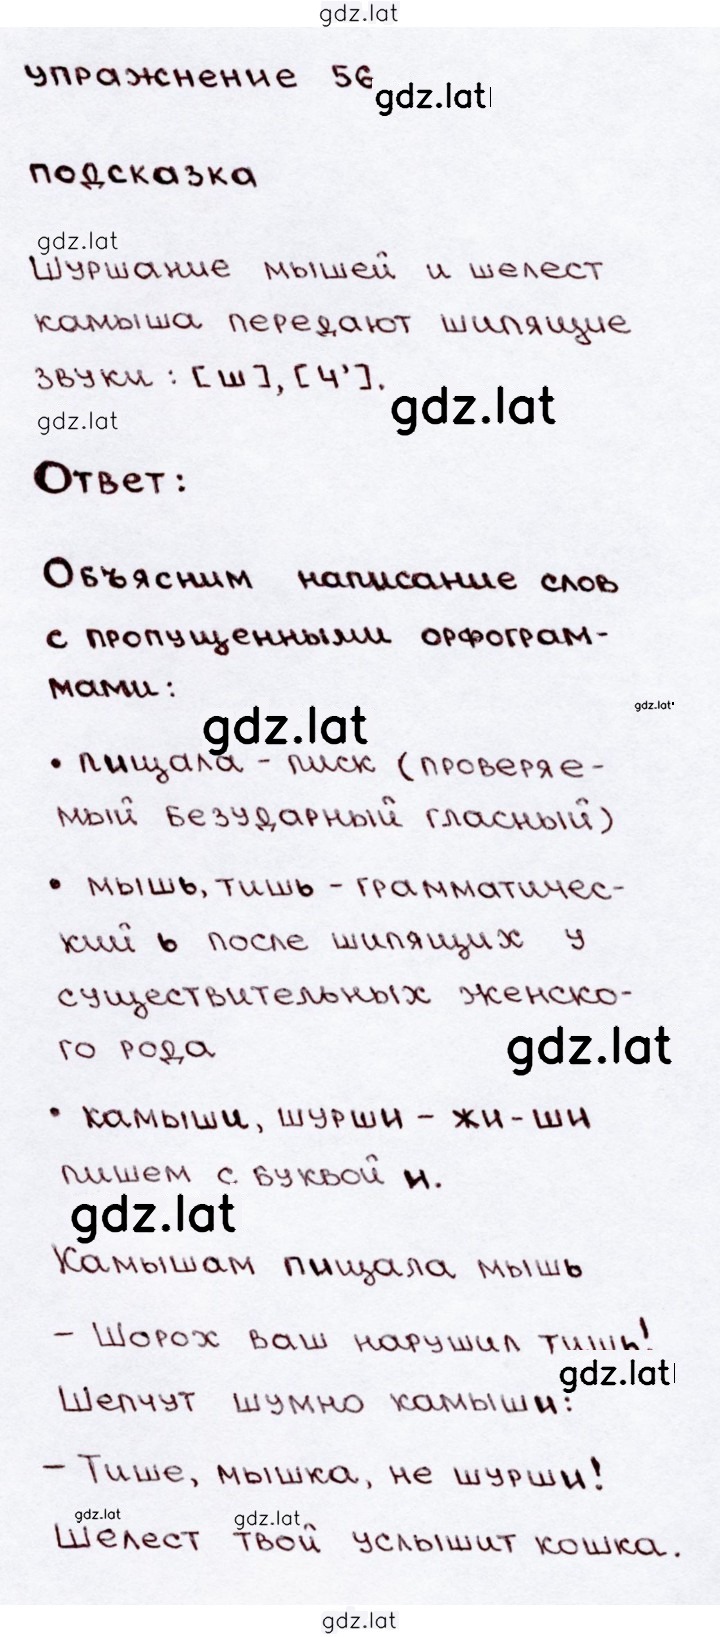 gdz.lat
упражнение 56
gdz.lat
подсказка
gdz.lat
Шуршание мышей и шелест
камыша передают шипящие
звуки : [ш], [ч'].
gdz.lat
gdz.lat
Ответ:
Объясним написание слов
с пропущенными орфограм-
мами:
gdz.lat
gdz.lat
• пищала - писк (проверяе-
мый безударный гласный)
• мышь, тишь - грамматичес-
кий ь после шипящих у
существительных женско-
го рода
gdz.lat
• камыши, шурши - жи-ши
пишем с буквой и.
gdz.lat
Камышам пищала мышь
- Шорох ваш нарушил тишь!
gdz.lat
Шепчут шумно камыши:
- Тише, мышка, не шурши!
gdz.lat
gdz.lat
Шелест твой услышит кошка.
gdz.lat